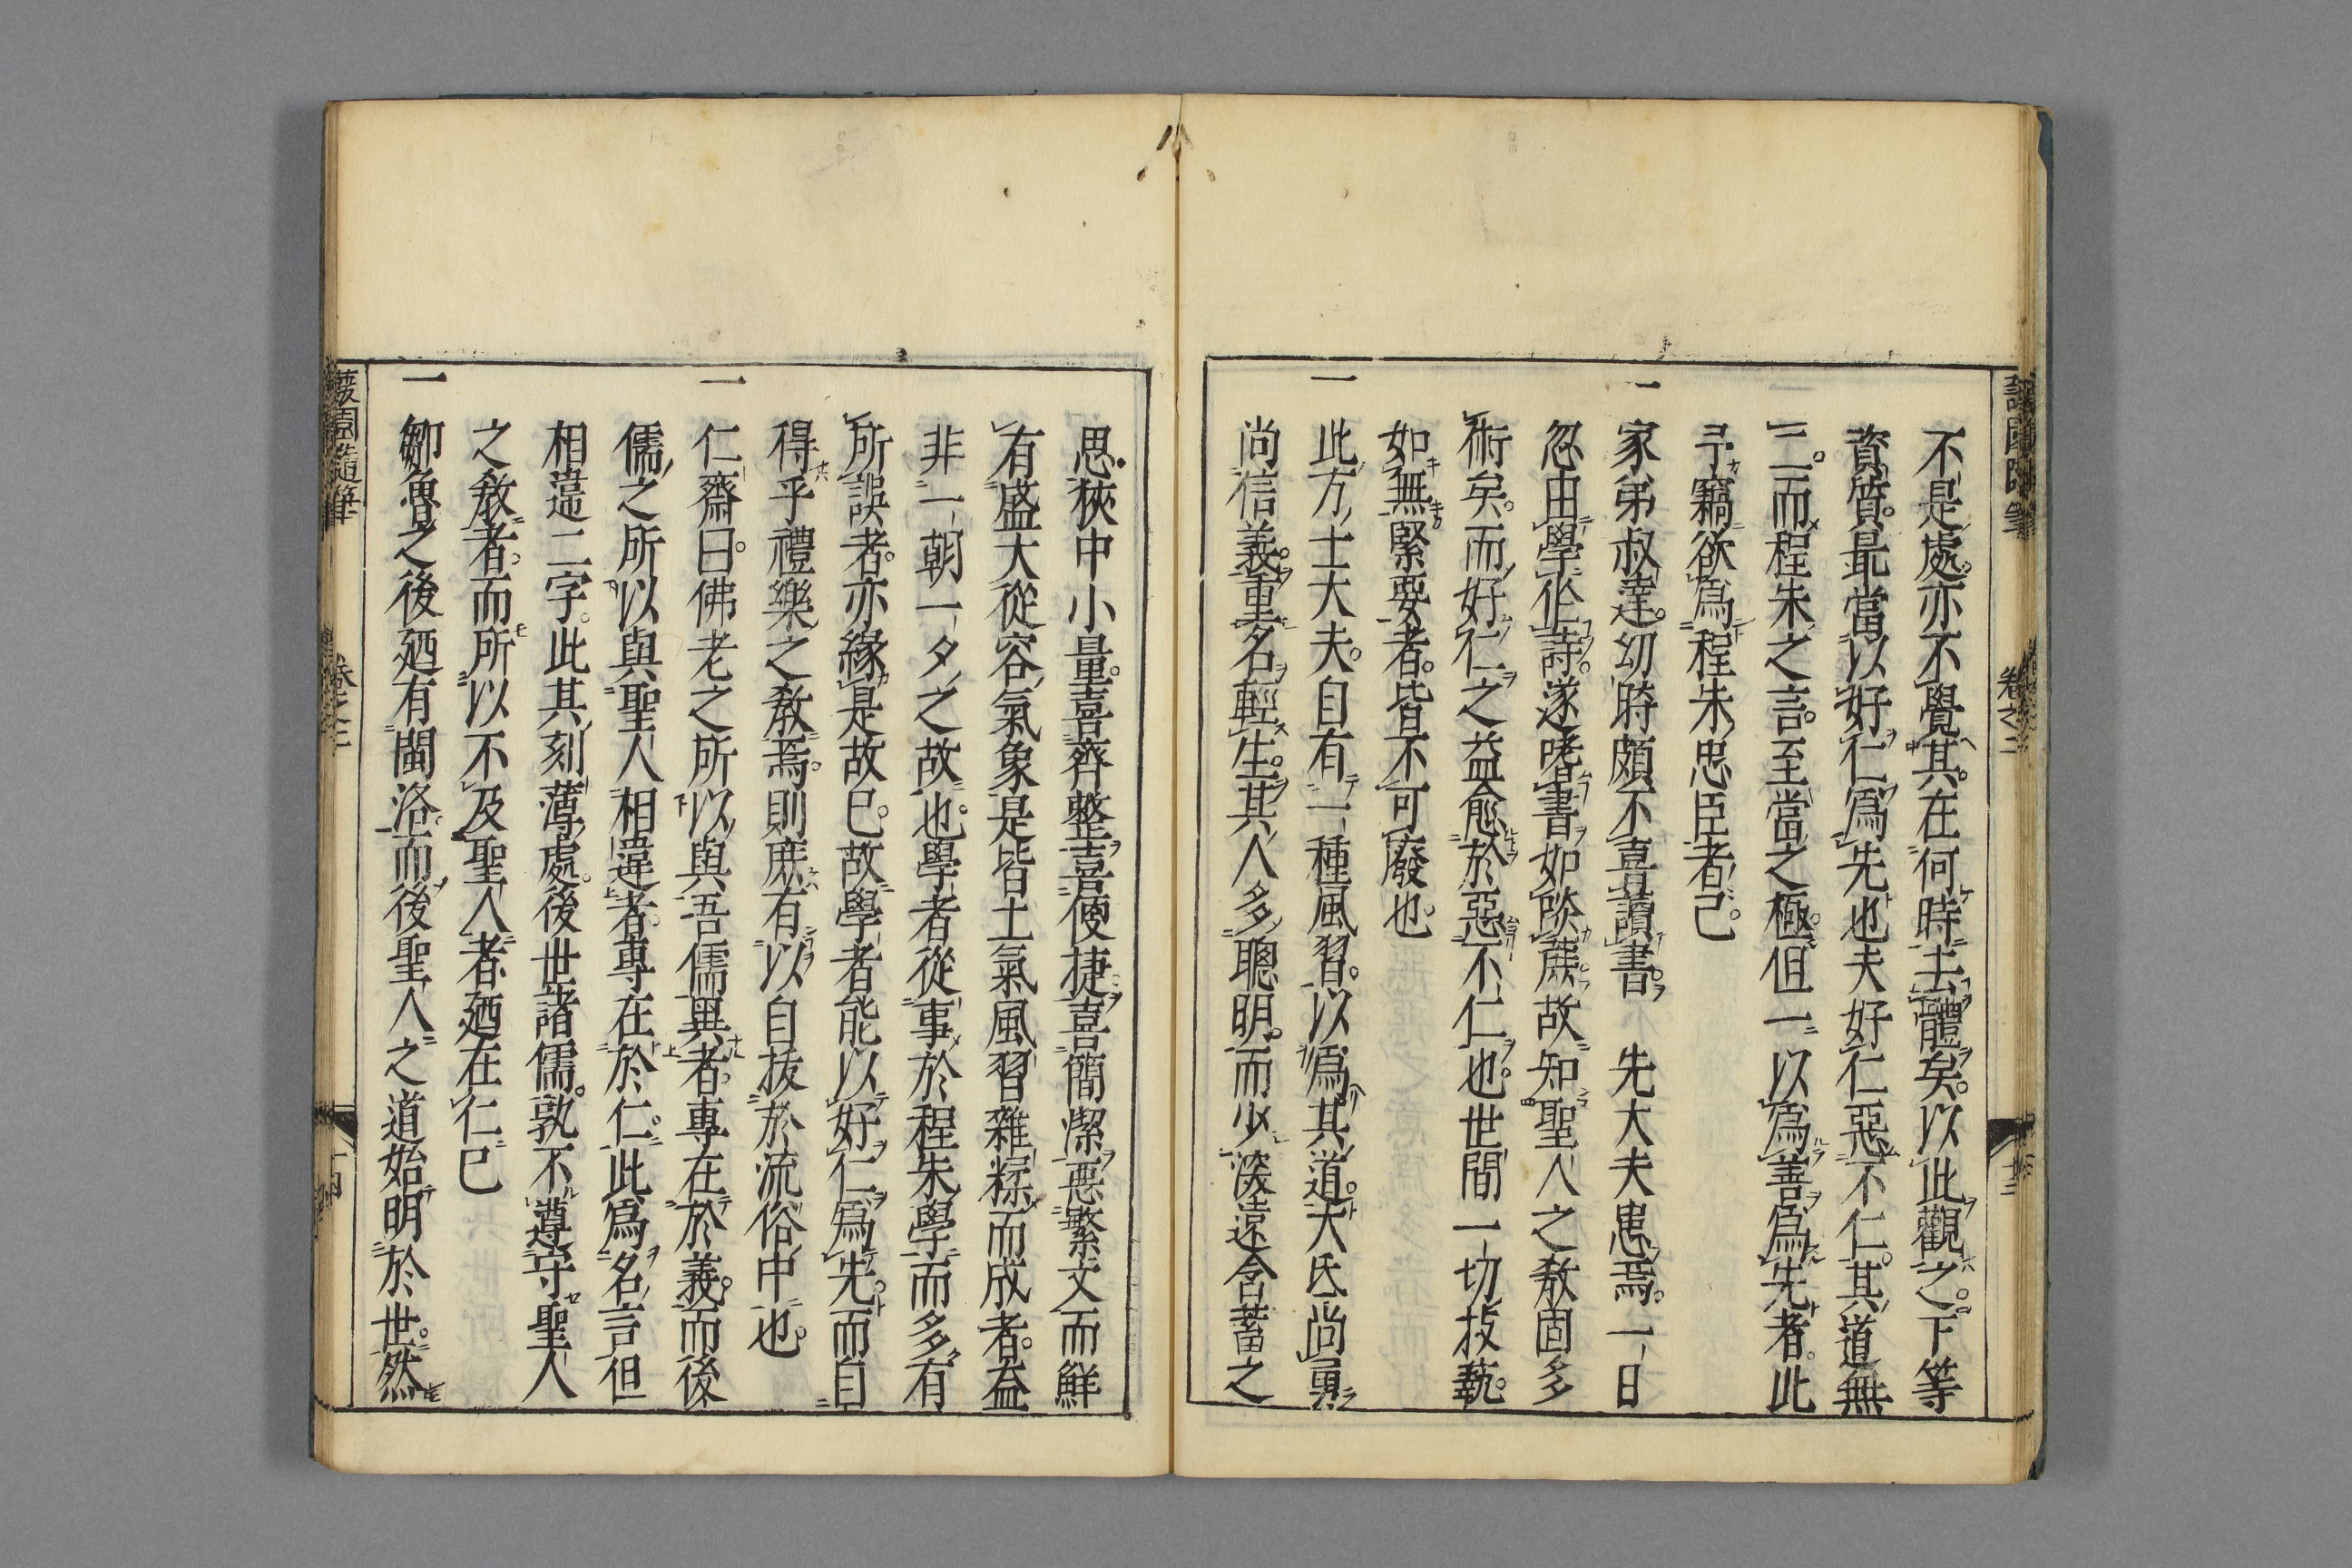 不是處。亦不覺其。在何時去體矣。以此觀之。下等
資質。最當以好仁爲先也夫好仁惡不仁。其道無
二。而程朱之言。至當之極。但一以爲善爲先者。此
予竊欲爲程朱忠臣者已。
一家弟叔達。幼時頗不喜讀書。先大夫患焉。一日
忽由學作詩。遂嗜書如啖蔗。故知聖人之敎固多
術矣。而好仁之益愈於惡不仁也。世間一切技藝。
如無緊要者。皆不可廢也。
一此方士大夫。自有一種風習。以爲其道。大氐尚勇
尚信義。重名輕生。其人多聰明。而少淡遠含蓄之
思。狹中小量。喜齊整喜便捷喜簡潔惡繁文而鮮
有盛大從容氣象是皆土氣風習雜糅而成者。益
非一朝一夕之故也。學者從事於程朱學而多有
所誤者。亦緣是故已。故學者能以好仁爲先。而自
得乎禮樂之敎焉。則庶有以自拔於流俗中也。
一仁齋曰。佛老之所以與吾儒異者。專在於義。而後
儒之所以與聖人相違者。專在於仁。此爲名言但
相違二字。此其刻薄處。後世諸儒。孰不遵守聖人
之敎者。而所以不及聖人者。廼在仁已
一鄒魯之後廼有閩洛。而後聖人之道始明於世。然
蘐園隨筆
卷之二